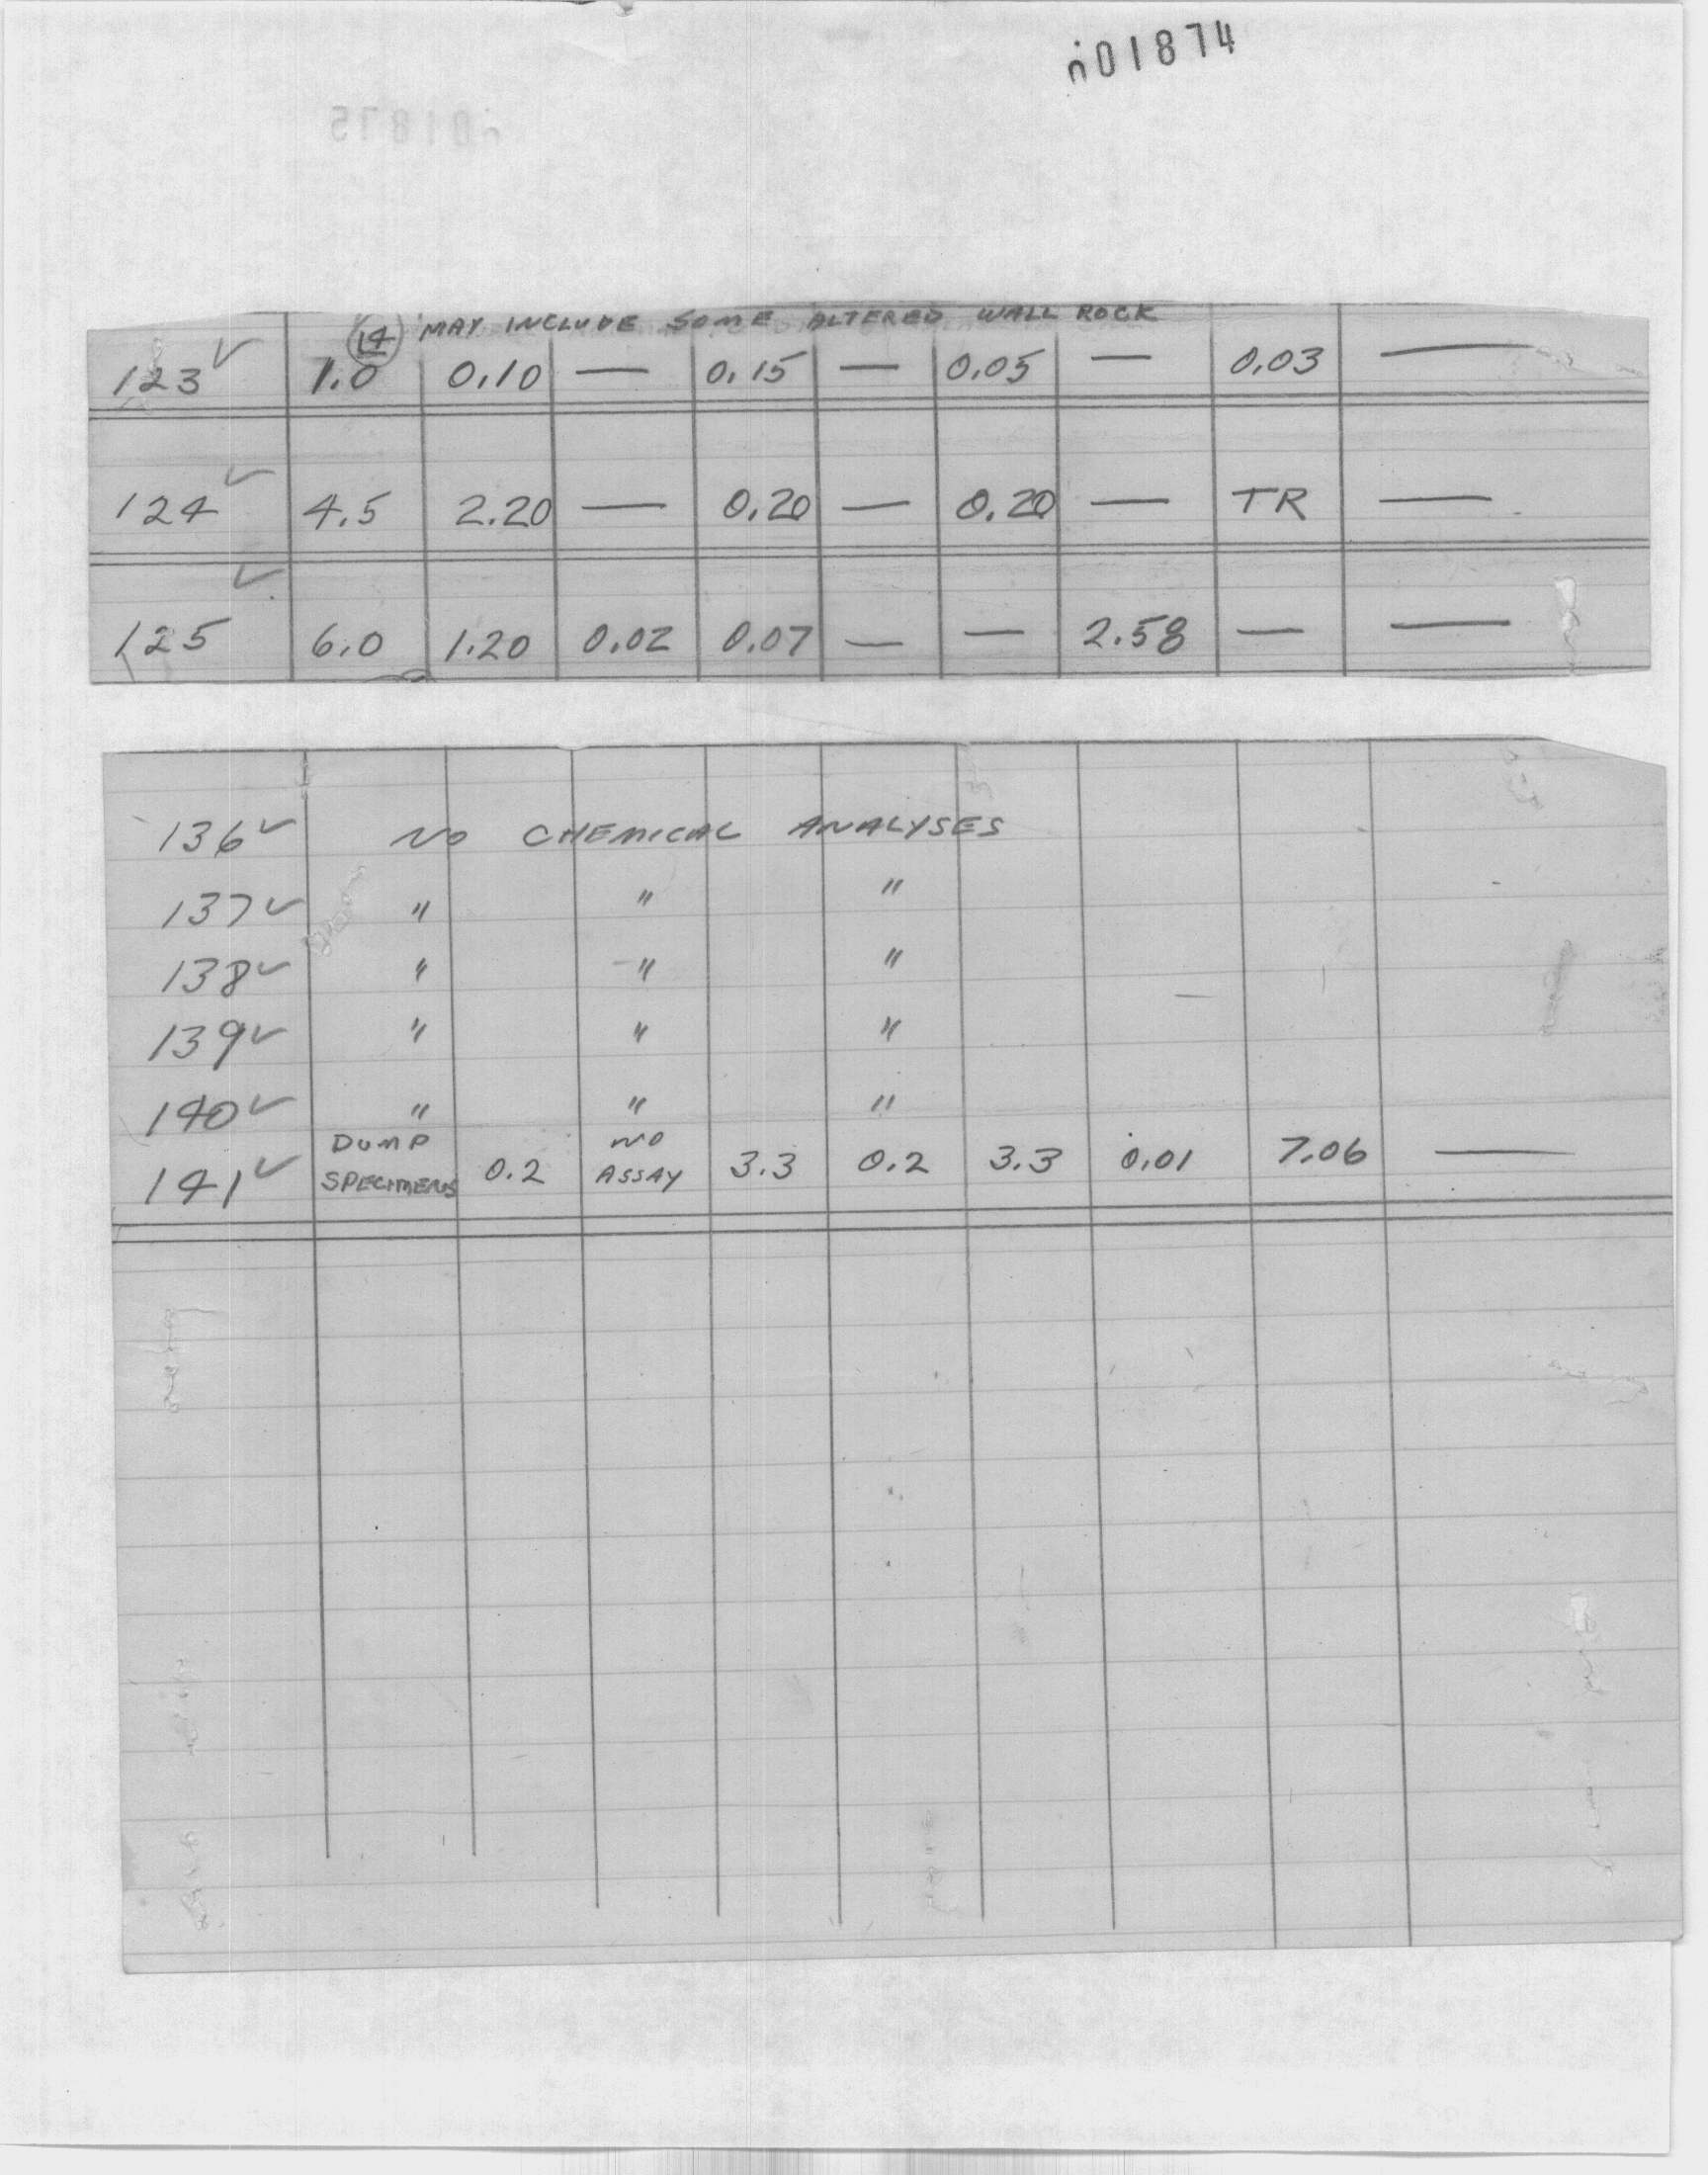 001874
14 MAY INCLUDE SOME ALTERED WALL ROCK
123 ✓ 1.0 0.10 — 0.15 — 0.05 — 0.03 —
124 ✓ 4.5 2.20 — 0.20 — 0.20 — TR —
125 ✓ 6.0 1.20 0.02 0.07 — — 2.58 — —
136 ✓ NO CHEMICAL ANALYSES
137 ✓ " " "
138 ✓ " " "
139 ✓ " " "
140 ✓ " " "
141 ✓ DUMP SPECIMENS 0.2 NO ASSAY 3.3 0.2 3.3 0.01 7.06 —